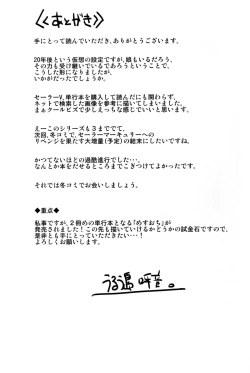 <<あとがき>>
手にとって読んでいただき、ありがとうございます。
20年後という仮想の設定ですが、娘もいるだろう、
その力も受け継いでいるであろうということで、
こうした形になりましたが、
いかがだったでしょうか。
セーラーV、単行本を購入して読んだにも関わらず、
ネットで検索した画像を参考に描いてしまいました。
まぁクールビズで少しえっちな感じでいいと思います。
えーこのシリーズも3まででて、
次回、冬コミで、セーラーマーキュリーへの
リベンジを果たす大増量(予定)の結末にしたいですね。
かつてないほどの過酷進行でした…。
なんとか本をだせるところまでこぎつけてよかったです。
それでは冬コミでお会いしましょう。
◆重点◆
私事ですが、2冊めの単行本となる「めすおち」が
発売されました!この先も描いていけるかどうかの試金石ですので、
是非とも手にとっていただきたい…!
よろしくお願いします。